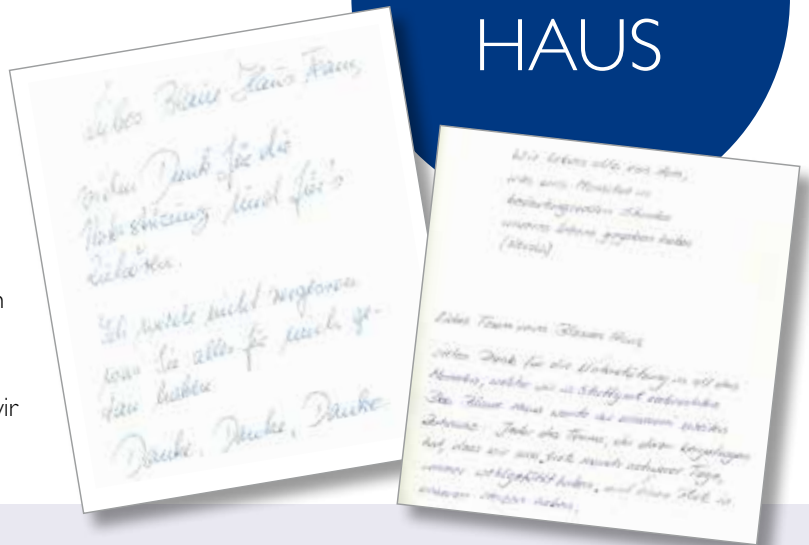 HAUS
Liebes Blaue Haus Team,
vielen Dank für die
Unterstützung und für's
Zuhören.
Ich werde nicht vergessen
was Sie alles für mich ge-
tan haben.
Danke, Danke, Danke
Wir leben alle von dem,
was uns Menschen in
bedeutungsvollen Stunden
unseres Lebens gegeben haben
Liebes Team vom Blauen Haus,
vielen Dank für die Unterstützung in all den
Monaten, welche wir in Stuttgart verbrachten
Das Blaue Haus wurde zu unserem zweiten
Zuhause. Jeder des Teams, der dazu beigetragen
hat, dass wir uns, trotz manch schwerer Tage,
immer wohlgefühlt haben, wird einen Platz in
unseren Herzen haben.
n
vir